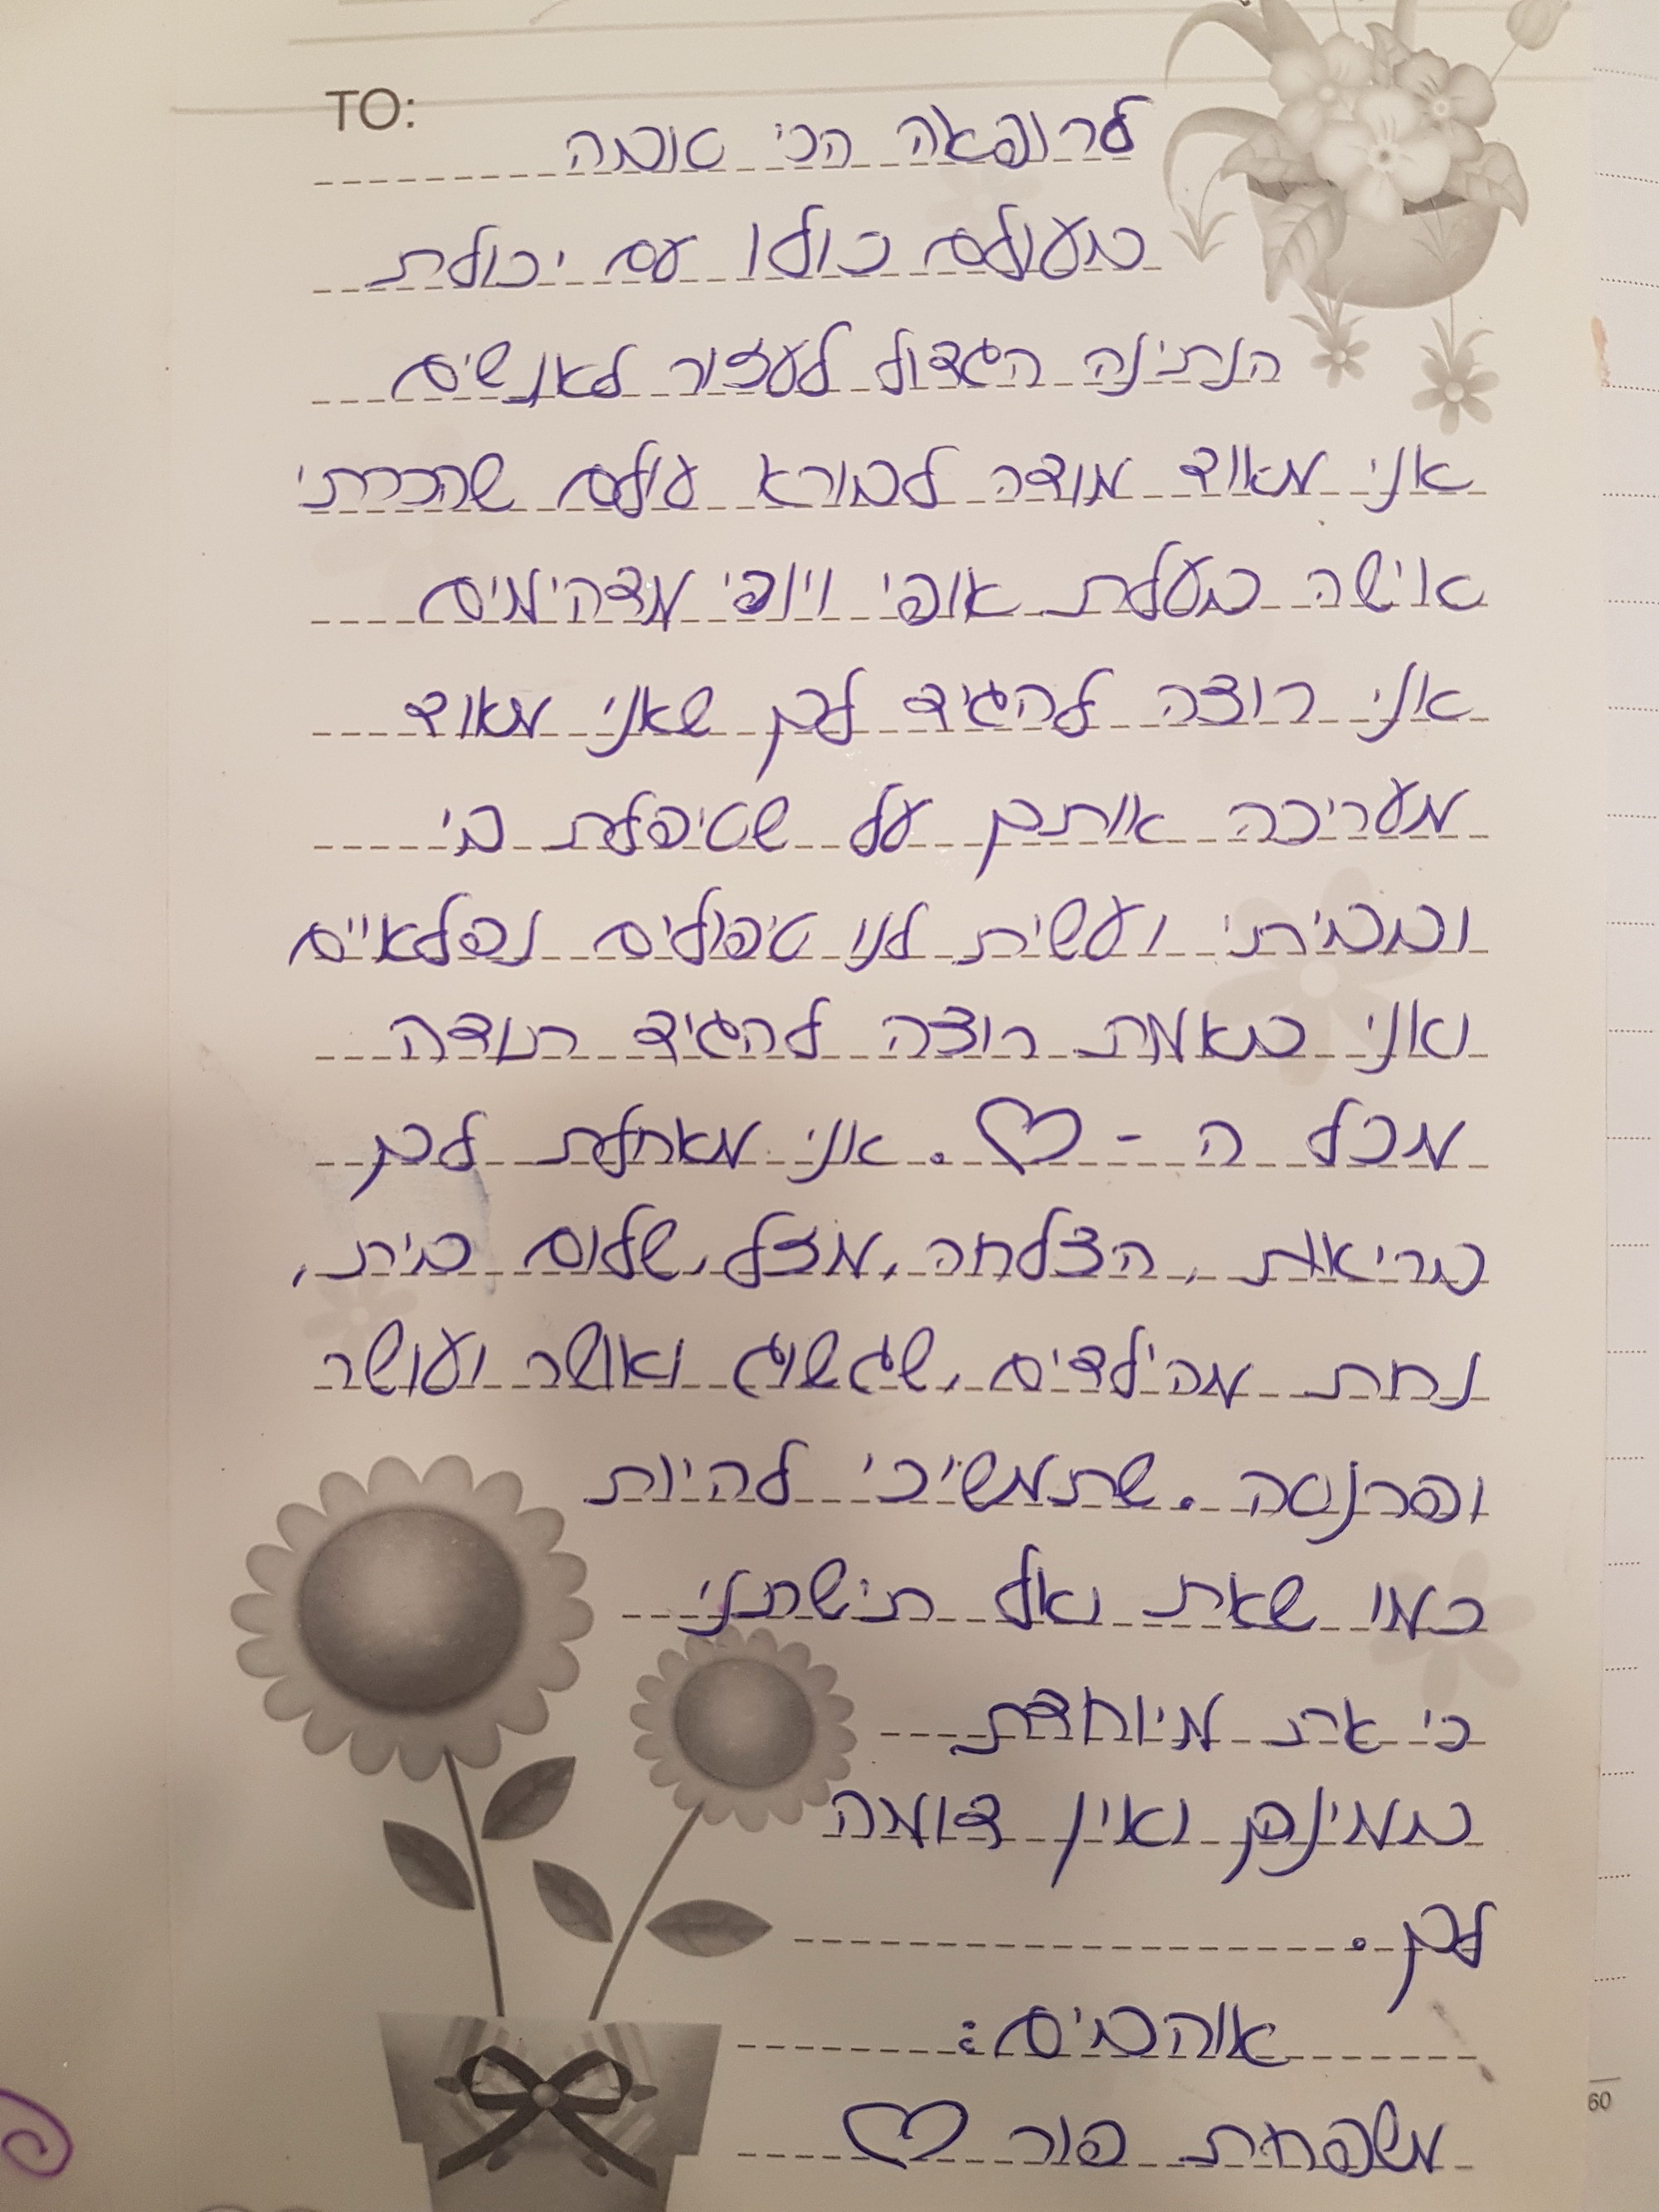 TO:
לרופאה הכי טובה
בעולם כולו עם יכולת
הנתינה הגדול לעזור לאנשים
אני מאוד מודה לבורא עולם שהכרתי
אישה בעלת אופי ויופי מדהימים
אני רוצה להגיד לכן שאני מאוד
מעריכה אותכן על שטיפלת בי
ובביתי ועשית לנו טיפולים נפלאיים
ואני באמת רוצה להגיד תודה
מכל ה - ♡. אני מאחלת לכן
בריאות, הצלחה, מזל, שלום בית,
נחת מהילדים, שגשוג ואושר ועושר
ופרנסה. שתמשיכי להיות
כמו שאת ואל תישתני
כי את מיוחדת
במינכן ואין דומה
לכן.
אוהבים:
משפחת פור ♡
60